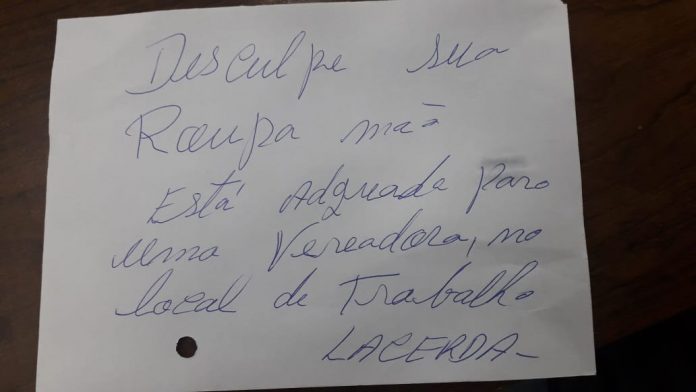 Desculpe sua
Roupa não
Está Adquada para
uma Vereadora, no
local de Trabalho
LACERDA-